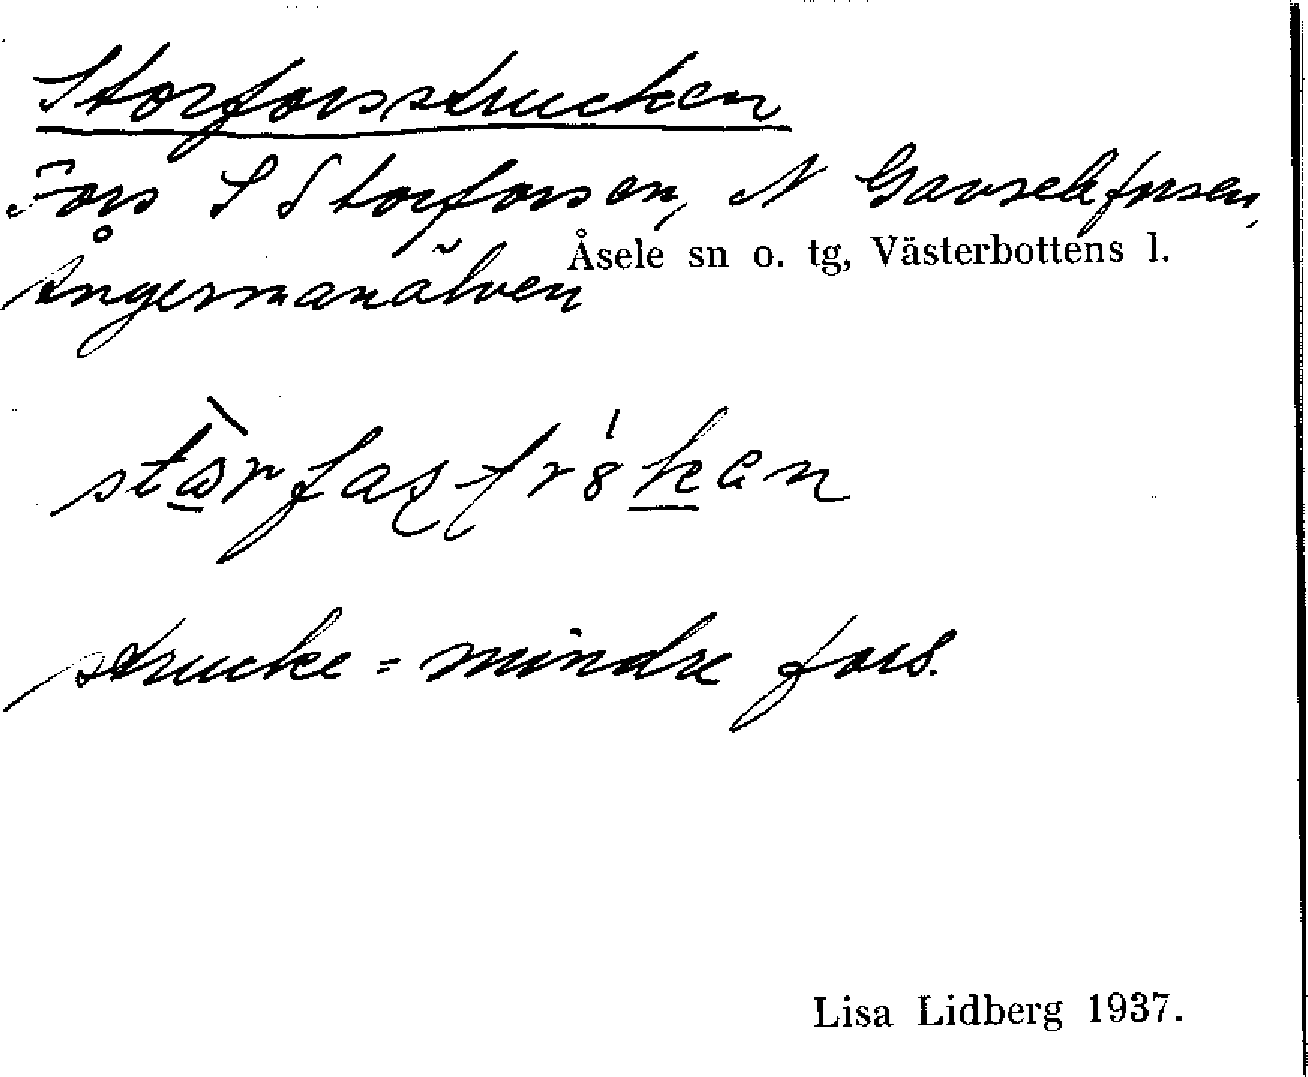 Storforsstrucken
Fors S Storforsen, N Gavselforsen,
Åsele sn o. tg, Västerbottens l.
Ångermanälven
strucke = mindre fors.
Lisa Lidberg 1937.